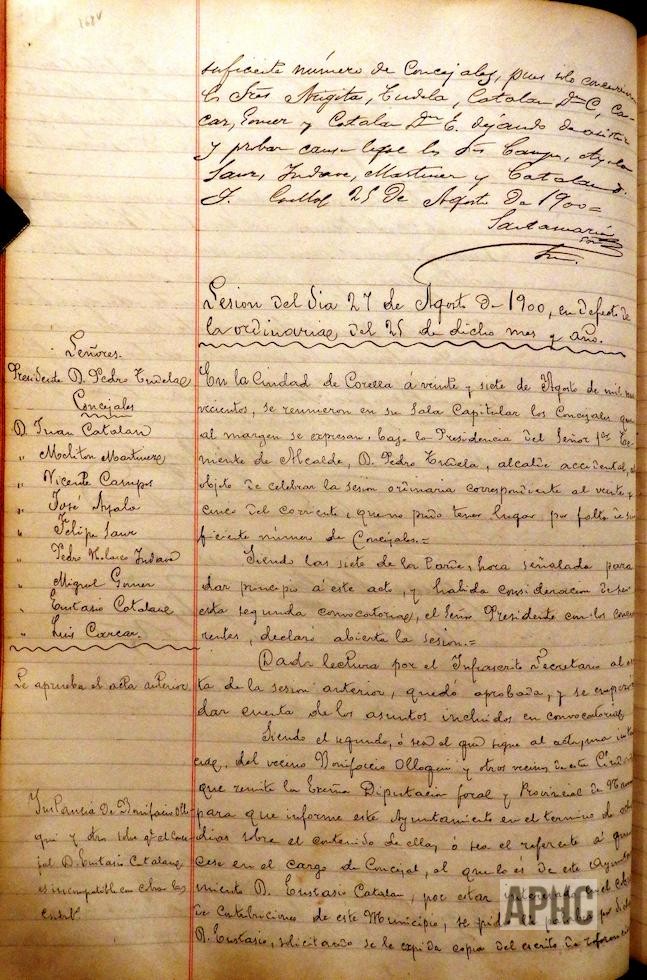 suficiente número de Concejales, pues solo concurrieron
los Sres Tudela, Catalan Dn C, Car-
car, Gomer y Catalan Dn E. dejando de asistir
y probar causa legal los Srs Campos, Ayala
Saur, Indave, Martinez y Catalan D.
J. Corella 25 de Agosto de 1900=
Santamaria
Sesion del dia 27 de Agosto de 1900, en defecto de
la ordinaria del 25 de dicho mes y año.
Señores.
Presidente D. Pedro Tudela
Concejales
D. Juan Catalan
" Meliton Martinez
" Vicente Campos
" José Ayala
" Felipe Saur
" Pedro Indave
" Miguel Gomer
" Eustasio Catalan
" Luis Carcar.
Se aprueba el acta anterior
Instancia de Bonifacio Ollo-
qui y otros sobre qe el Conce-
jal D. Eustasio Catalan
es incompatible con
En la Ciudad de Corella á veinte y siete de Agosto de mil no-
vecientos, se reunieron en su Sala Capitular los Concejales que
al margen se expresan, bajo la Presidencia del Señor 1er Te-
niente de Alcalde, D. Pedro Tudela, alcalde accidental, al
objeto de celebrar la sesion ordinaria correspondiente al veinte y
cinco del corriente, que no pudo tener lugar por falta de su-
ficiente número de Concejales.=
Siendo las siete de la tarde, hora señalada para
dar principio á este acto, y habida consideracion de ser
esta segunda convocatoria, el Señor Presidente con los concur-
rentes, declaró abierta la sesion.=
Dada lectura por el Infrascrito Secretario al ac-
ta de la sesion anterior, quedó aprobada, y se empezó á
dar cuenta de los asuntos incluidos en convocatoria.
Siendo el segundo, ó sea el que sigue al acta, una instan-
cia, del vecino Bonifacio Olloqui y otros vecinos de esta Ciudad
que remite la Excma Diputacion foral y Provincial de Navarra
para que informe este Ayuntamiento en el termino de
dias sobre el contenido de ella, ó sea el referente á que
cese en el cargo de Concejal, al que lo es de este Ayunta-
miento D. Eustasio Catalan, por estar
de Contribuciones de este Municipio, se por dicho
D. Eustasio, solicitando se le expida copia del escrito de referencia
APHC